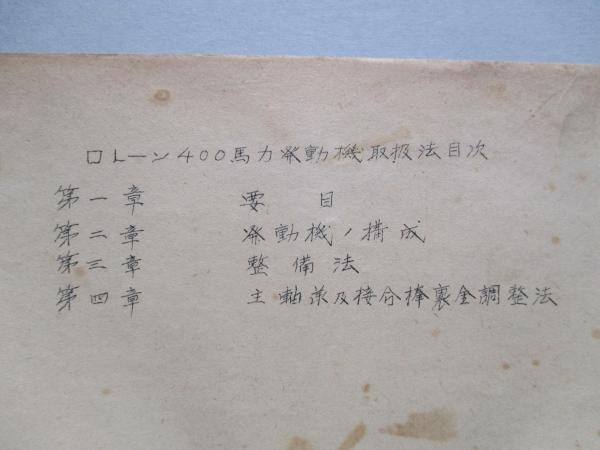 ロレーン400馬力発動機取扱法目次
第一章 要目
第二章 発動機ノ構成
第三章 整備法
第四章 主軸並及接合棒裏金調整法